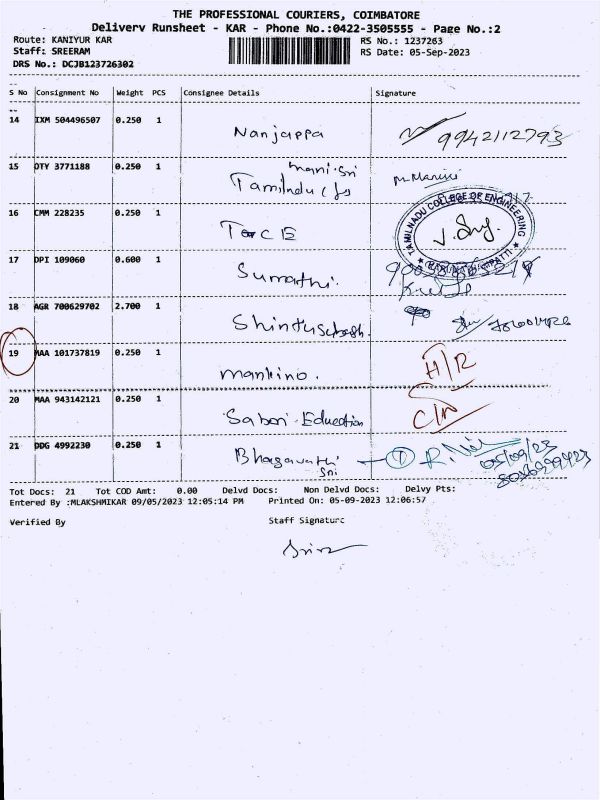 THE PROFESSIONAL COURIERS, COIMBATORE
Delivery Runsheet - KAR - Phone No.:0422-3505555 - Page No.:2
Route: KANIYUR KAR RS No.: 1237263
Staff: SREERAM RS Date: 05-Sep-2023
DRS No.: DCJB123726302
S No Consignment No Weight PCS Consignee Details Signature
14 IXM 504496507 0.250 1 Nanjappa 9942112793
15 OTY 3771188 0.250 1 mani.sri
16 CMM 228235 0.250 1 TCE
TAMILNADU COLLEGE OF ENGINEERING
17 DPI 109060 0.600 1 Sumathi.
18 AGR 700629702 2.700 1
19 MAA 101737819 0.250 1 mankino. H/R
20 MAA 943142121 0.250 1 Sabari Education
21 DDG 4992230 0.250 1 Bhagavathi Sri 05/09/23
Tot Docs: 21 Tot COD Amt: 0.00 Delvd Docs: Non Delvd Docs: Delvy Pts:
Entered By :MLAKSHMIKAR 09/05/2023 12:05:14 PM Printed On: 05-09-2023 12:06:57
Verified By Staff Signature